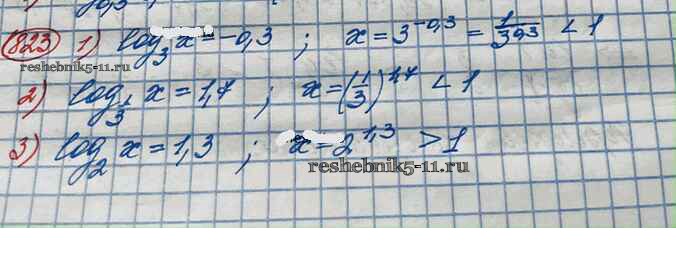 823) 1) log₃ x = -0,3 ; x = 3^{-0,3} = 1/3^{0,3} < 1
reshebnik5-11.ru
2) log_{1/3} x = 1,7 ; x = (1/3)^{1,7} < 1
3) log₂ x = 1,3 ; x = 2^{1,3} > 1
reshebnik5-11.ru